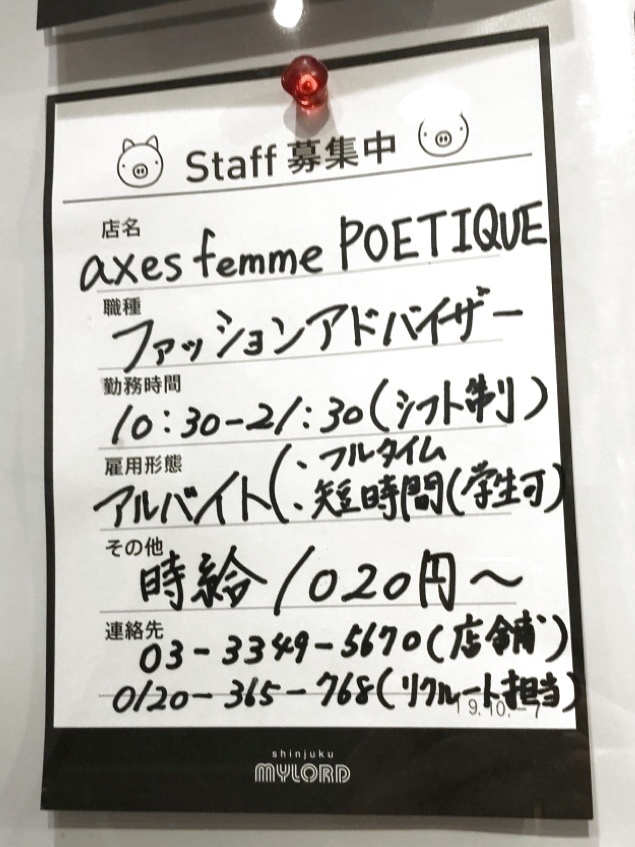 Staff 募集中
店名
axes femme POETIQUE
職種
ファッションアドバイザー
勤務時間
10:30-21:30(シフト制)
雇用形態
アルバイト(・フルタイム
・短時間(学生可)
その他
時給1020円〜
連絡先
03-3349-5670(店舗)
0120-365-768(リクルート担当)
19.10.-7
shinjuku
MYLORD